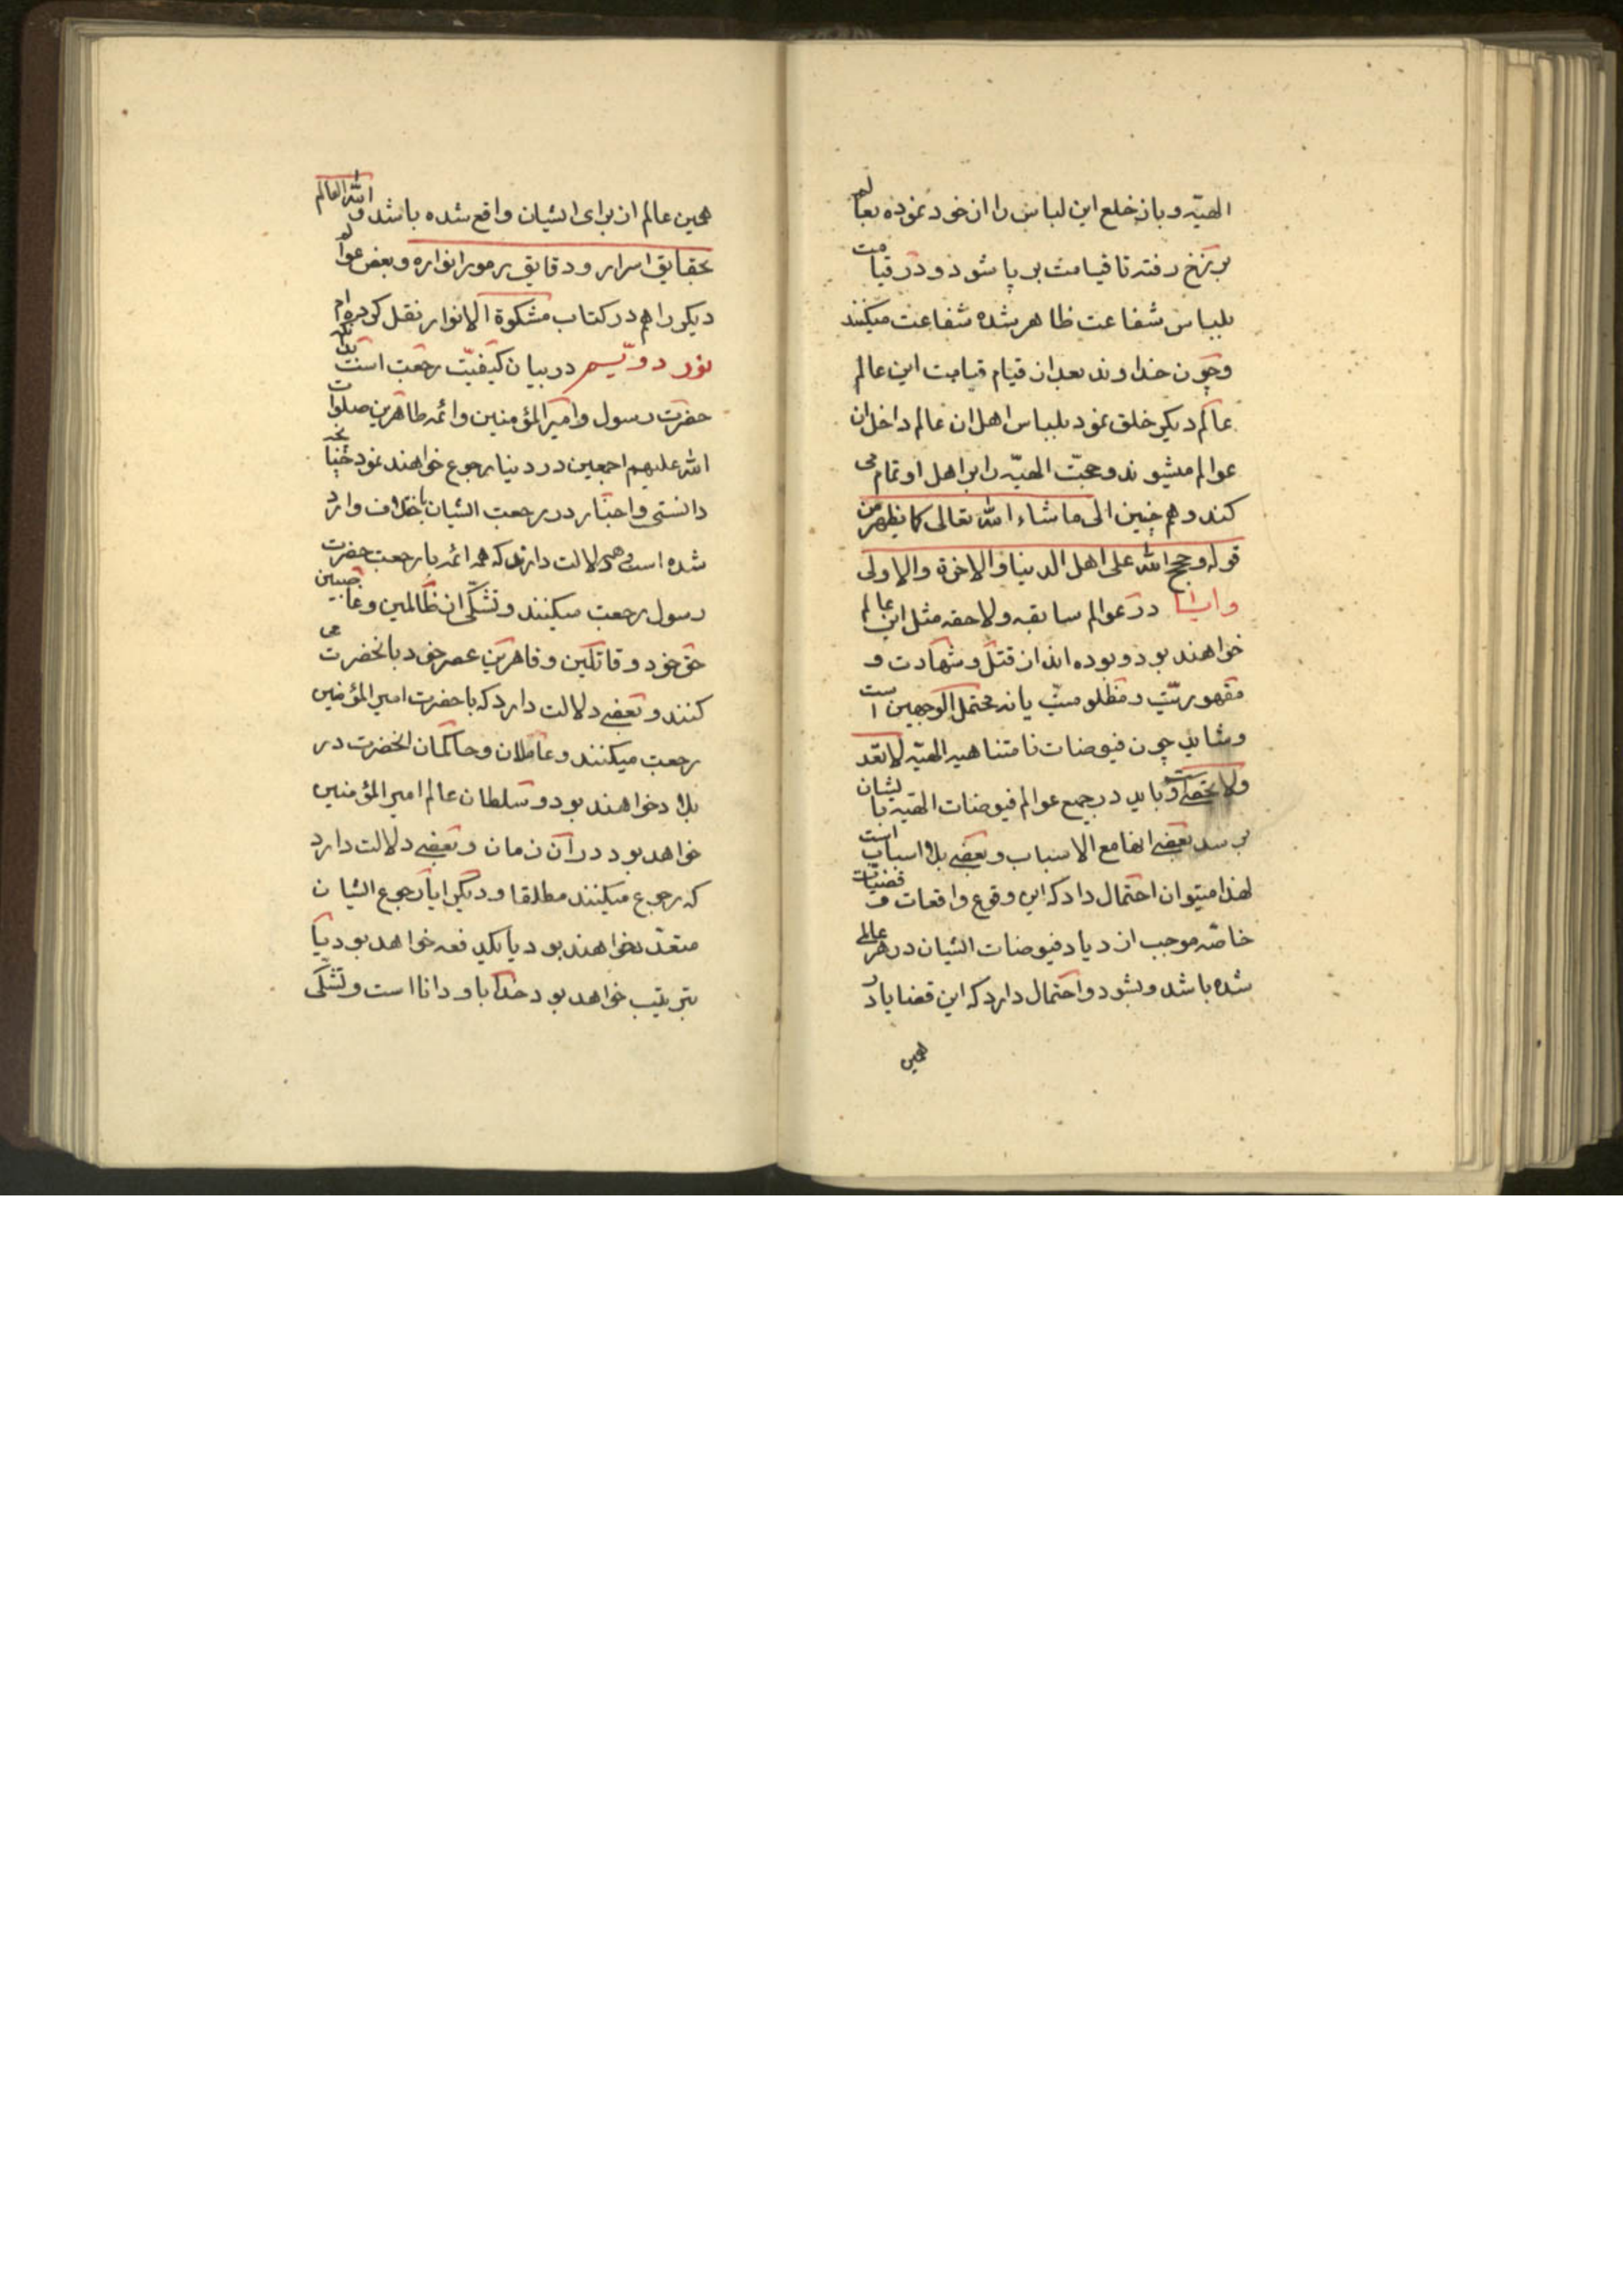 الهیّه و باز خلع این لباس را از خود نموده بعالم
برزخ رفته تا قیامت بر پا شود و در قیامت
بلباس شفاعت ظاهر شده شفاعت میکنند
و چون خداوند بعد از قیام قیامت این عالم
عالم دیگر خلق نمود بلباس اهل ان عالم داخل ان
عوالم میشوند و حجّت الهیّه را بر اهل او تمام می
کنند و هم چنین الی ماشاء الله تعالی کما یظهر من
قوله و حجج الله علی اهل الدنیا و الاخرة و الاولی
و ایشا در عوالم سابقه و لاحقه مثل این عالم
خواهند بود و بوده اند از قتل و شهادت و
مقهوریّت و مظلومیّت یا نه محتمل الوجهین است
و شاید چون فیوضات نامتناهیه الهیّه لا تعد
ولا تحصی است و باید در جمیع عوالم فیوضات الهیّه بایشان
برسد بعضی انها مع الاسباب و بعضی بلا اسباب است
لهذا میتوان احتمال داد که این وقوع واقعات و قضیّات
خاصّه موجب ازدیاد فیوضات ایشان در هر عالمی
شده باشد و بشود و احتمال دارد که این قضایا در
همین
همین عالم از برای ایشان واقع شده باشد و الله العالم
بحقایق اسراره و دقایق رموز انواره و بعض عوالم
دیگر را هم در کتاب مشکوة الانوار نقل کرده ام
نور دویّسم در بیان کیفیّت رجعت است بدانکه
حضرت رسول و امیر المؤمنین و ائمه طاهرین صلوات
الله علیهم اجمعین در دنیا رجوع خواهند نمود چنانچه
دانستی و اخبار در رجعت ایشان باختلاف وارد
شده است و همه دلالت دارند که همه ائمه با رجعت حضرت
رسول رجعت میکنند و تشکّی از ظالمین و غاصبین
حق خود و قاتلین و قاهرین عصر خود بانحضرت می
کنند و بعضی دلالت دارد که با حضرت امیر المؤمنین
رجعت میکنند و عاملان و حاکمان انحضرت در
بلاد خواهند بود و سلطان عالم امیر المؤمنین
خواهد بود در آن زمان و بعضی دلالت دارد
که رجوع میکنند مطلقا و دیگر ایا رجوع ایشان
متعدّد خواهند بود یا بیکدفعه خواهد بود یا
بترتیب خواهد بود خدا باو دانا است و تشکّی